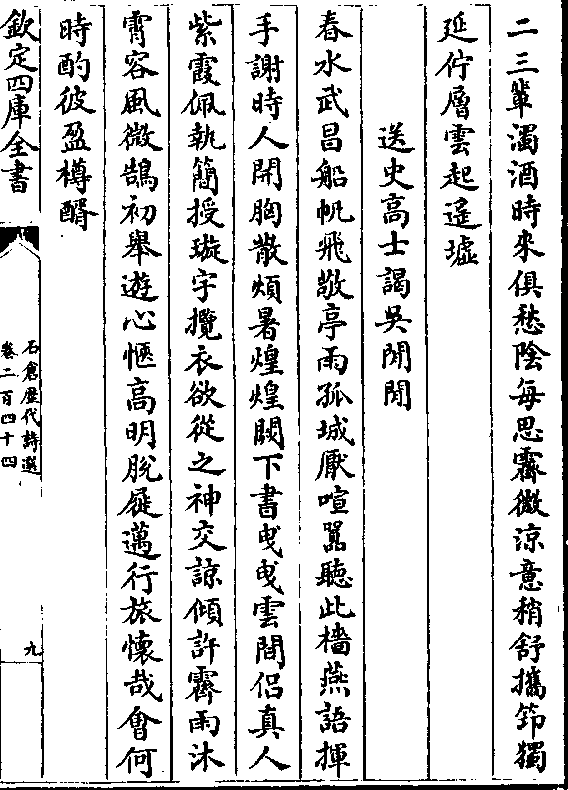 二三輩濁酒時來俱愁陰每思霽微涼意稍舒攜笻獨
延佇層雲起遥墟
送史高士謁吳閒閒
春水武昌船帆飛敬亭雨孤城厭喧囂聽此檣燕語揮
手謝時人開胸散煩暑煌煌闕下書曵曵雲間侣真人
紫霞佩執簡授璇宇攬衣欲從之神交諒傾許霽雨沐
霄容風微鵠初舉遊心愜高明脫屣邁行旅懷哉會何
時酌彼盈樽醑
欽定四庫全書
石倉歴代詩選
卷二百四十四
九